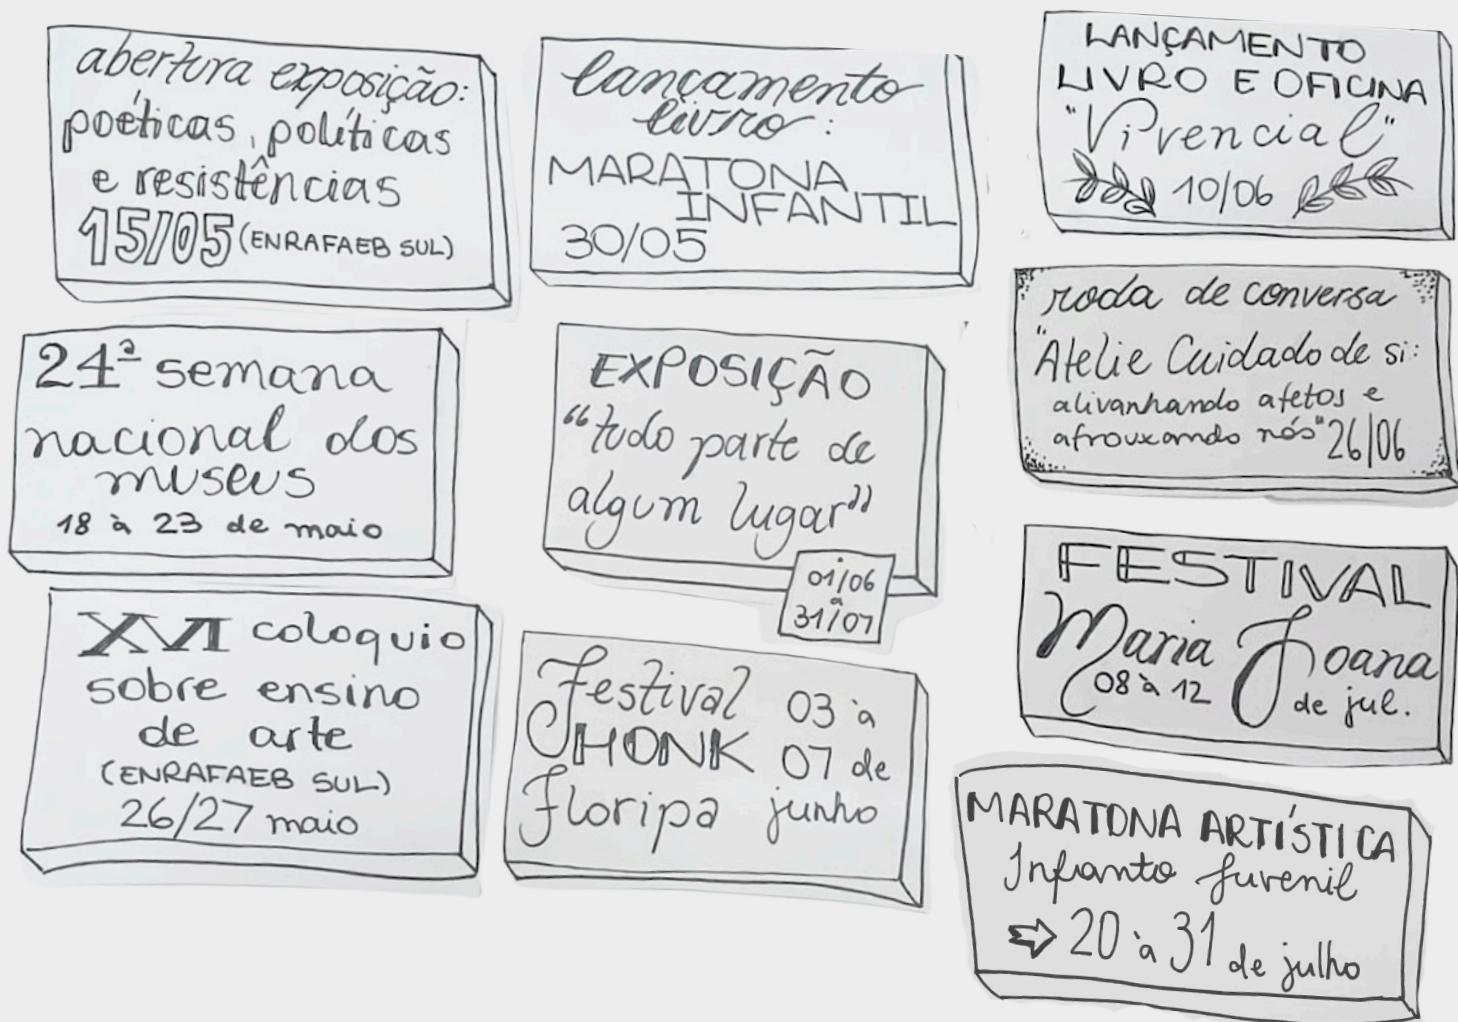 abertura exposição:
poéticas, políticas
e resistências
15/05 (ENRAFAEB SUL)
24ª semana
nacional dos
museus
18 à 23 de maio
XVI coloquio
sobre ensino
de arte
(ENRAFAEB SUL)
26/27 maio
lançamento
livro:
MARATONA
INFANTIL
30/05
EXPOSIÇÃO
"tudo parte de
algum lugar"
01/06
à
31/07
Festival 03 à
HONK 07 de
Floripa junho
LANÇAMENTO
LIVRO E OFICINA
"Vivencial"
10/06
roda de conversa
"Atelie Cuidado de si:
alivanhando afetos e
afrouxando nós" 26/06
FESTIVAL
Maria Joana
08 à 12 de jul.
MARATONA ARTÍSTICA
Infanto Juvenil
20 à 31 de julho